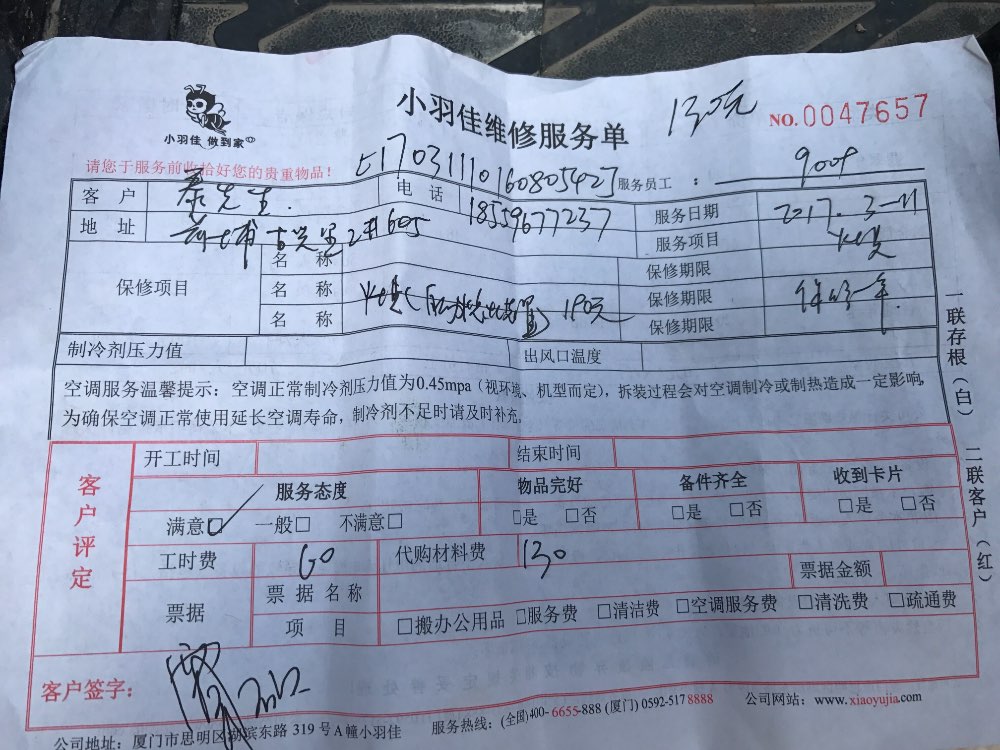 小羽佳维修服务单
130元
NO.0047657
小羽佳 做到家
请您于服务前收拾好您的贵重物品！
E17031110160805427
服务员工：9009
客户 秦先生. 电话 18559677237 服务日期 2017.3-11
地址 吉 里2#605 服务项目
保修项目 名称 保修期限
名称 190元 保修期限 保修一年.
名称 保修期限
制冷剂压力值 出风口温度
空调服务温馨提示：空调正常制冷剂压力值为0.45mpa（视环境、机型而定），拆装过程会对空调制冷或制热造成一定影响，
为确保空调正常使用延长空调寿命，制冷剂不足时请及时补充。
一联存根（白） 二联客户（红）
客户评定
开工时间 结束时间
服务态度 物品完好 备件齐全 收到卡片
满意☑ 一般□ 不满意□ □是 □否 □是 □否 □是 □否
工时费 60 代购材料费 130 票据金额
票据 票据名称
项目 □搬办公用品 □服务费 □清洁费 □空调服务费 □清洗费 □疏通费
客户签字：
公司地址：厦门市思明区湖滨东路319号A幢小羽佳 服务热线：(全国)400-6655-888 (厦门) 0592-5178888 公司网站：www.xiaoyujia.com